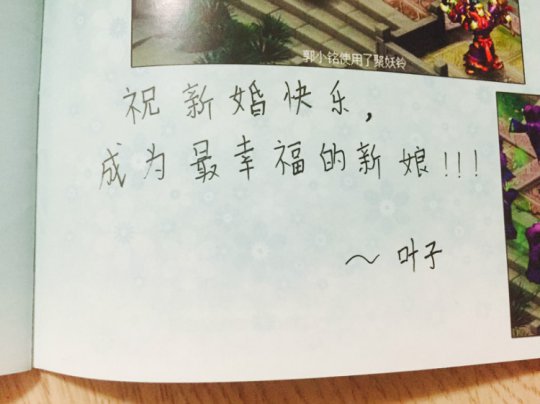 郭小铭使用了聚妖铃
祝新婚快乐,
成为最幸福的新娘!!!
~叶子